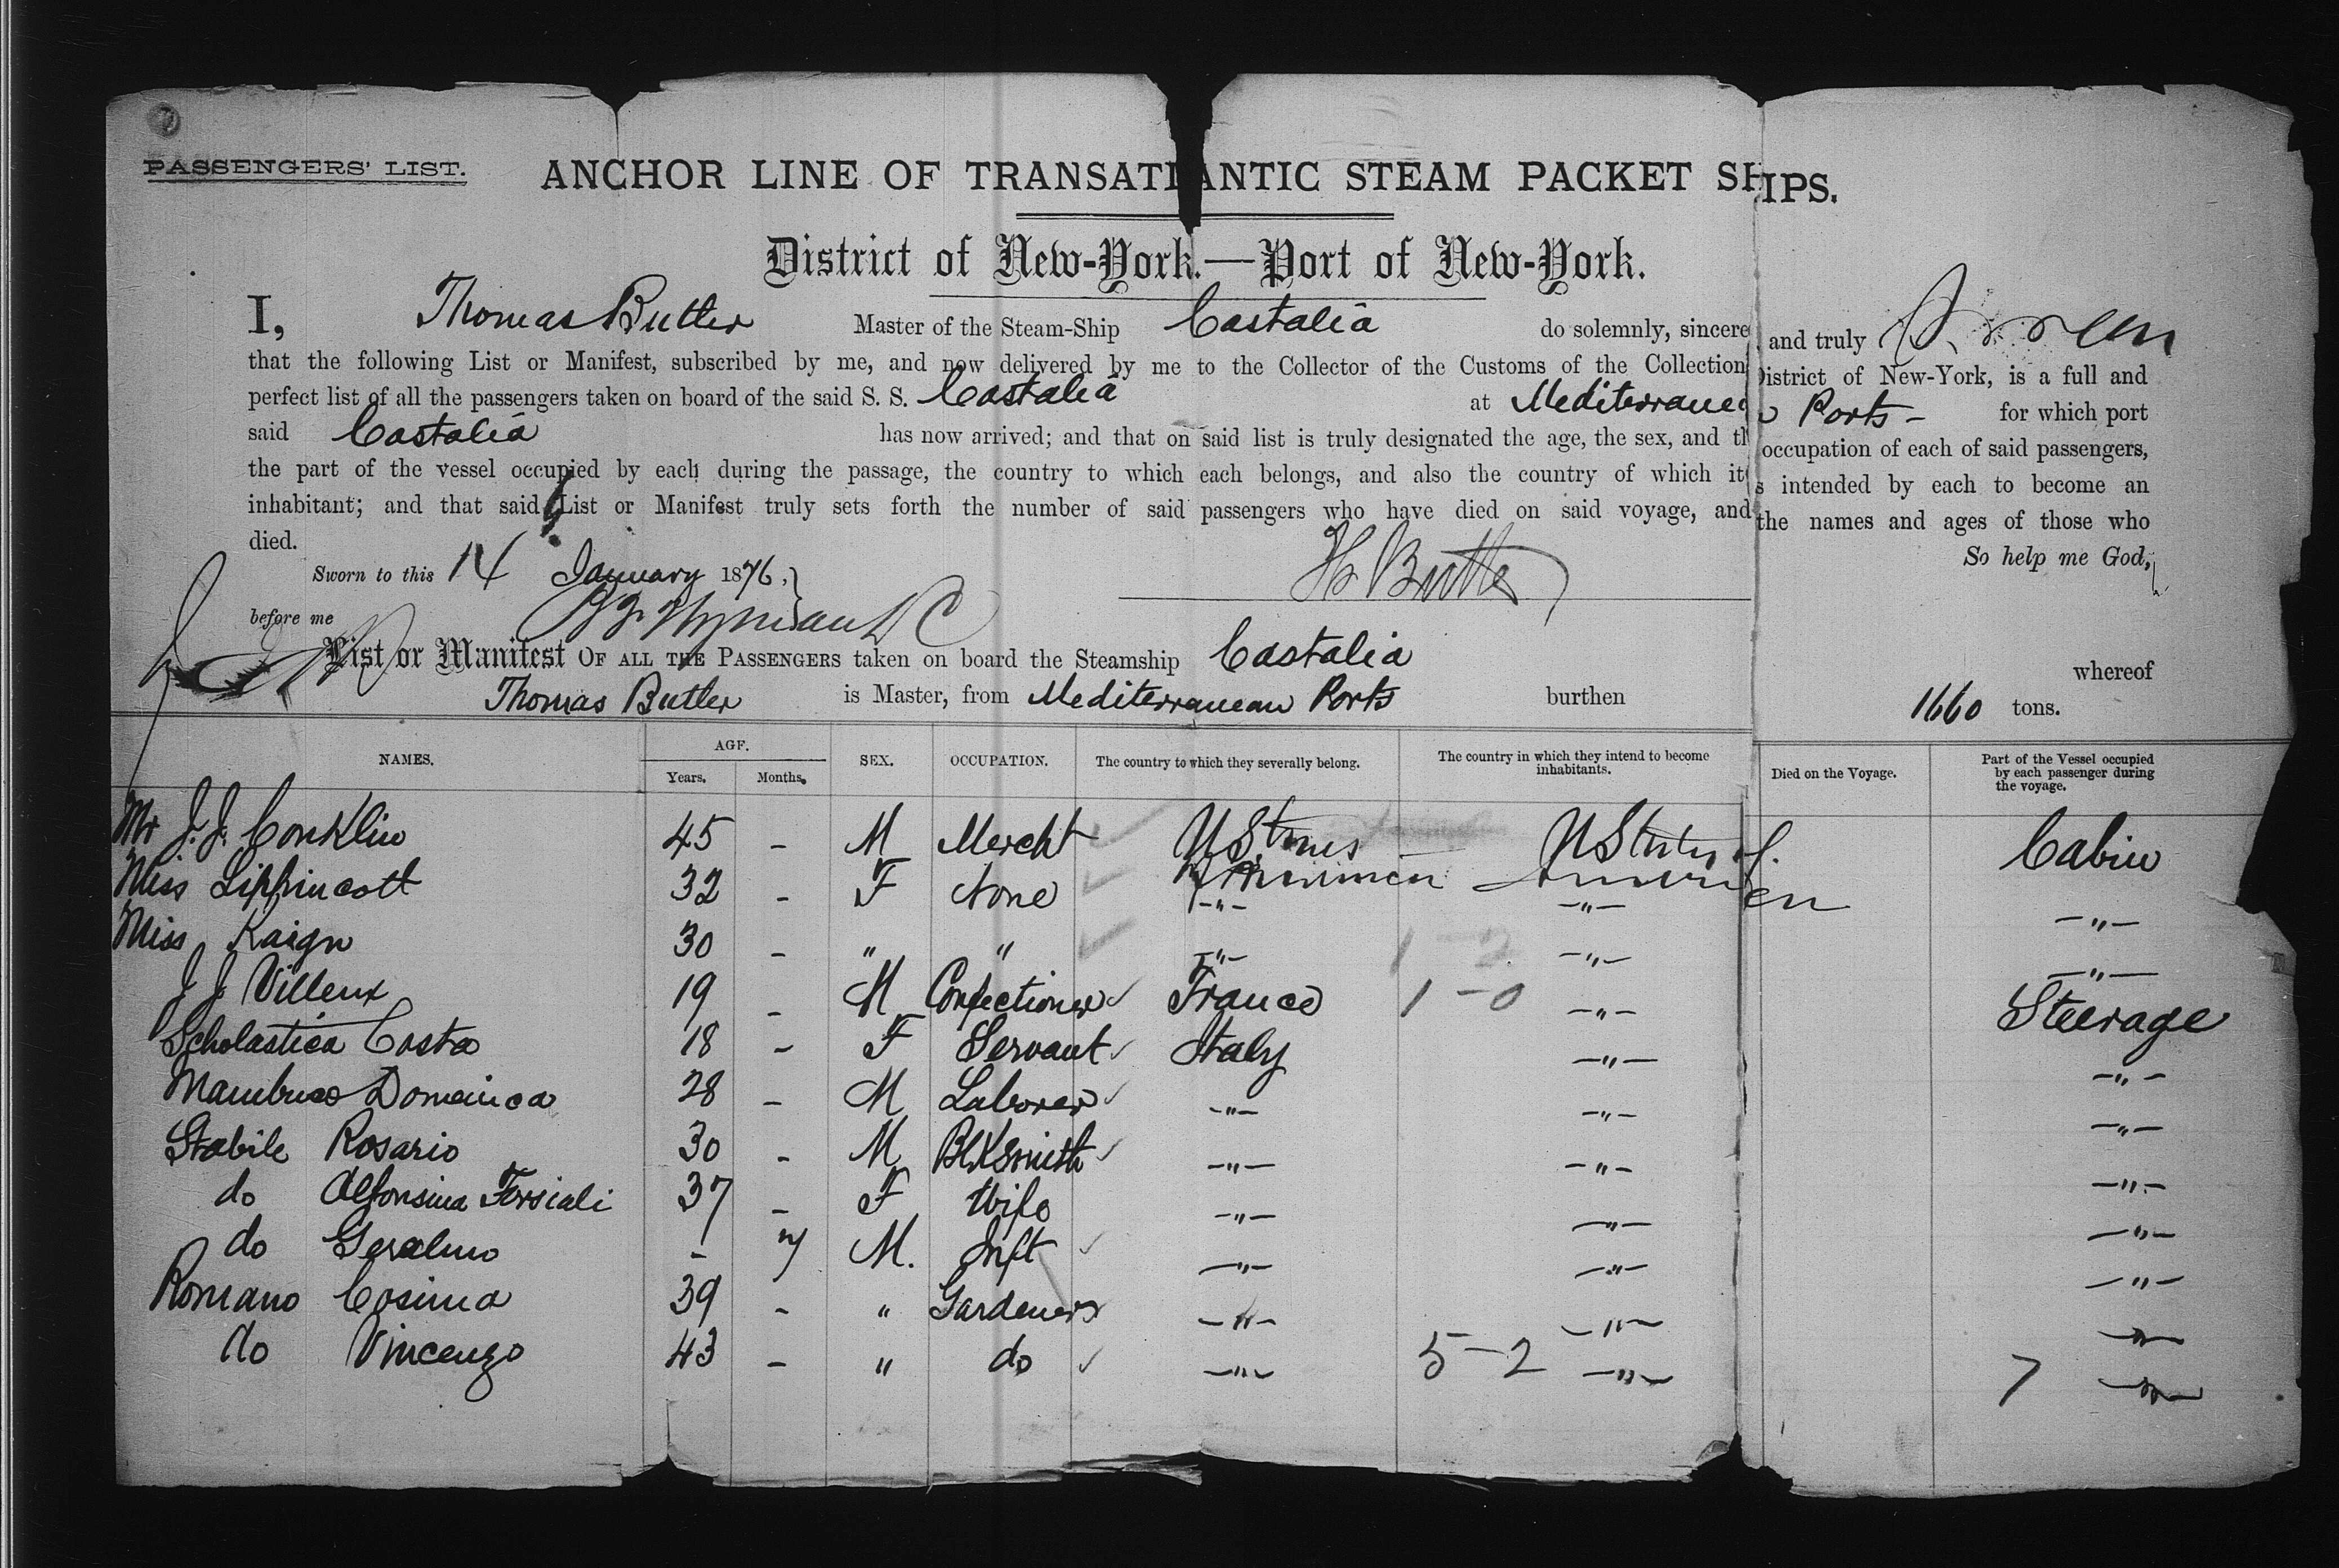 PASSENGERS' LIST. ANCHOR LINE OF TRANSATLANTIC STEAM PACKET SHIPS.
District of New-York.—Port of New-York.
I, Thomas Butler Master of the Steam-Ship Castalia do solemnly, sincere and truly
that the following List or Manifest, subscribed by me, and now delivered by me to the Collector of the Customs of the Collection District of New-York, is a full and
perfect list of all the passengers taken on board of the said S. S. Castalia at Mediterranean Ports - for which port
said Castalia has now arrived; and that on said list is truly designated the age, the sex, and th occupation of each of said passengers,
the part of the vessel occupied by each during the passage, the country to which each belongs, and also the country of which it is intended by each to become an
inhabitant; and that said List or Manifest truly sets forth the number of said passengers who have died on said voyage, and the names and ages of those who
died. So help me God,
Sworn to this 14 January 1876,
before me
List or Manifest OF ALL THE PASSENGERS taken on board the Steamship Castalia whereof
Thomas Butler is Master, from Mediterranean Ports burthen 1660 tons.
NAMES. AGE. Years. Months. SEX. OCCUPATION. The country to which they severally belong. The country in which they intend to become inhabitants. Died on the Voyage. Part of the Vessel occupied by each passenger during the voyage.
Mr J. J. Conklin 45 - M Mercht U States U States Cabin
Miss Lippincott 32 - F None -"- -"- -"-
Miss Kaign 30 - " " -"- -"- -"-
J J Villeux 19 - M Confectioner France 1-0 -"- Steerage
Scholastica Costa 18 - F Servant Italy -"- -"-
Domenica 28 - M Laborer -"- -"- -"-
Stabile Rosario 30 - M BlKsmith -"- -"- -"-
do Alfonsina 37 - F Wife -"- -"- -"-
do - M. Inft -"- -"- -"-
Romano Cosimo 39 - " Gardeners -"- -"- -"-
do Vincenzo 43 - " do -"- 5-2 -"- 7 -"-